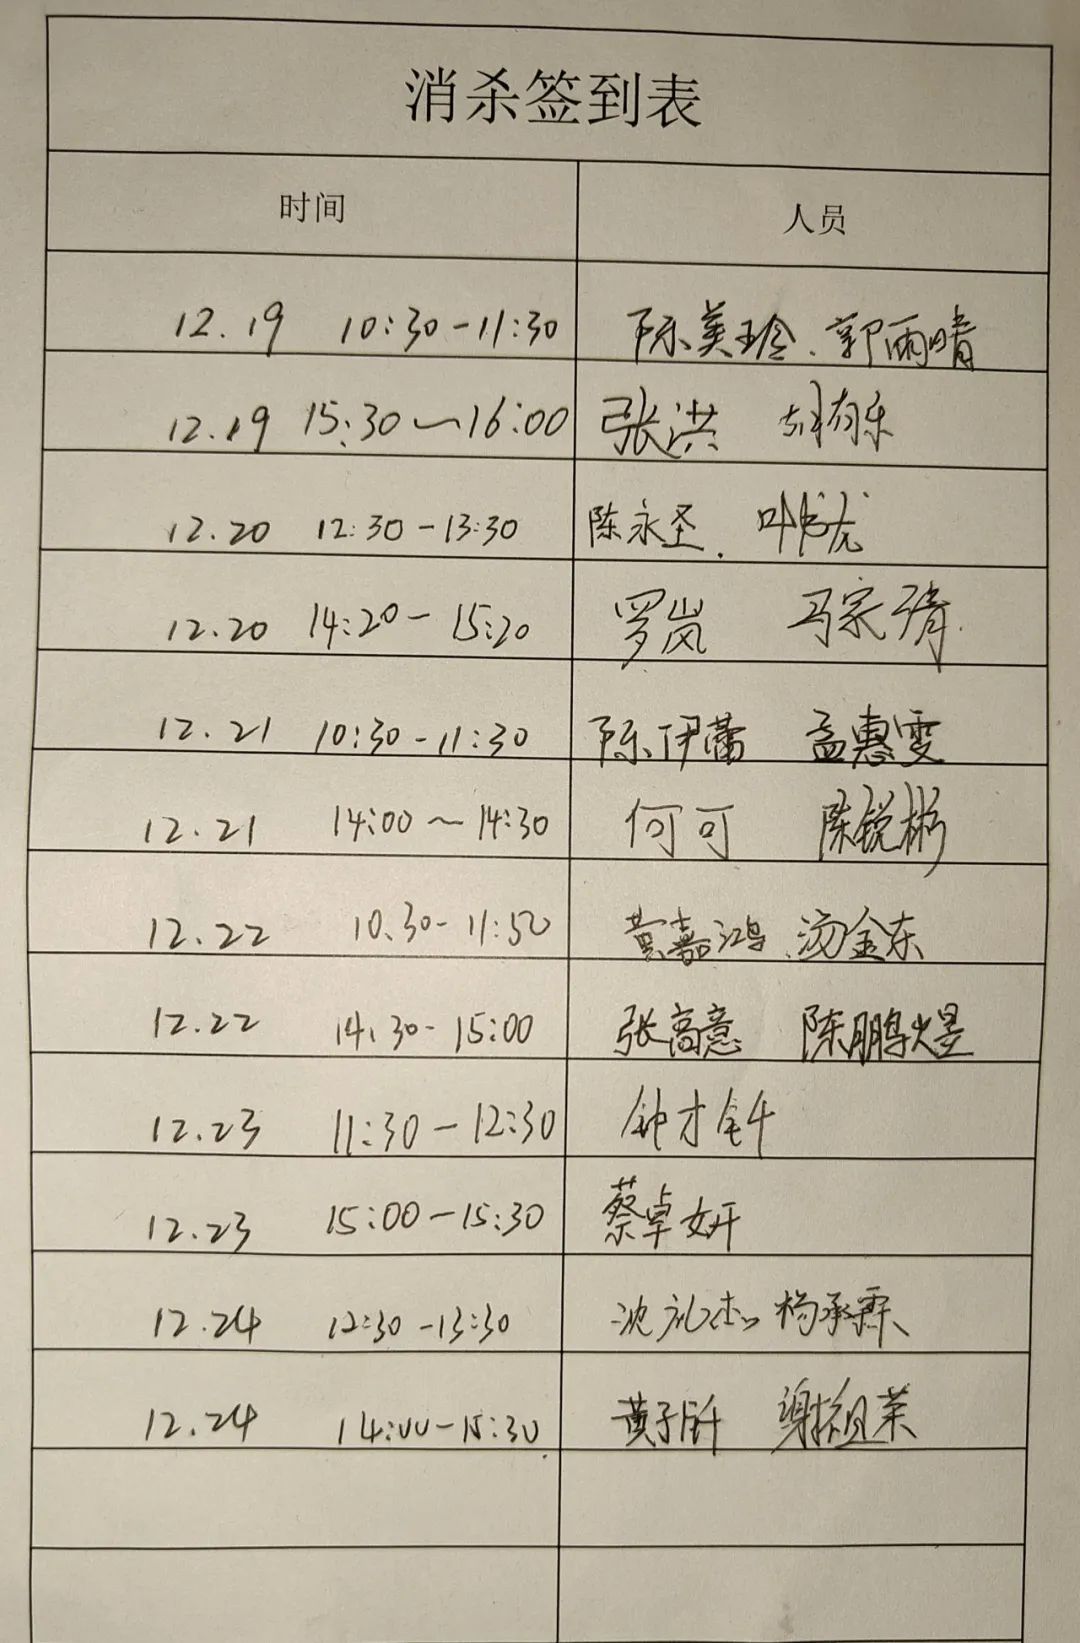 消杀签到表
时间 人员
12.19 10:30-11:30 陈美玲、郭雨晴
12.19 15:30~16:00 张洪 胡有乐
12.20 12:30-13:30 陈永圣、叶龙
12.20 14:20-15:20 罗岚 冯宗倩
12.21 10:30-11:30 陈伊蕾 孟惠雯
12.21 14:00~14:30 何可 陈锐彬
12.22 10.30-11:50 黄嘉鸿 汤金东
12.22 14.30-15:00 张高意 陈鹏煜
12.23 11:30-12:30 钟才钎
12.23 15:00-15:30 蔡卓妍
12.24 12:30-13:30 沈礼杰 杨承霖
12.24 14:00-15:30 黄子 谢祖荣